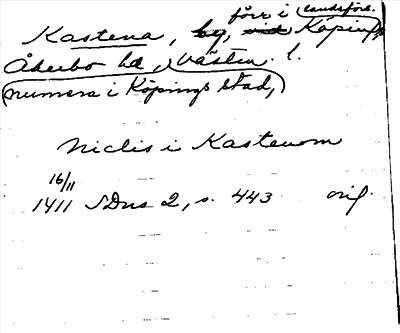 förr i landsförs.
Kastena, by, vid Köping,
Åkerbo hd, Västm. l.
(numera i Köpings stad,)
Niclis i Kastenom
16/11
1411 SDns 2, s. 443 orig.